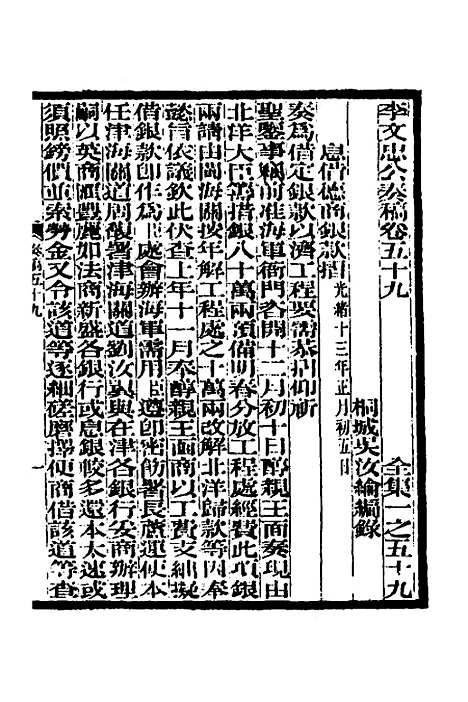 李文忠公奏稿卷五十九 全集一之五十九
桐城吳汝綸編錄
息借德商銀款摺 光緒十三年正月初五日
奏爲借定銀款以濟工程要需恭摺仰祈
聖鑒事竊前准海軍衙門咨開十二月初十日醇親王面奏現由
北洋大臣籌借銀八十萬兩預備明春分放工程處經費此項銀
兩請由閩海關按年解工程處之十萬兩改解北洋歸款等因奉
懿旨依議欽此伏查上年十一月奉醇親王面商以工費支絀擬
借銀款卽作爲上處會辦海軍需用上遵卽密飭署長蘆運使本
任津海關道周馥署津海關道劉汝翼與在津各銀行妥商辦理
嗣以英商滙豐麗如法商新盛各銀行或息銀較多還本太速或
須照鎊價並索勞金又令該道等逐細磋磨擇便商借該道等查
奏稿五十九 一